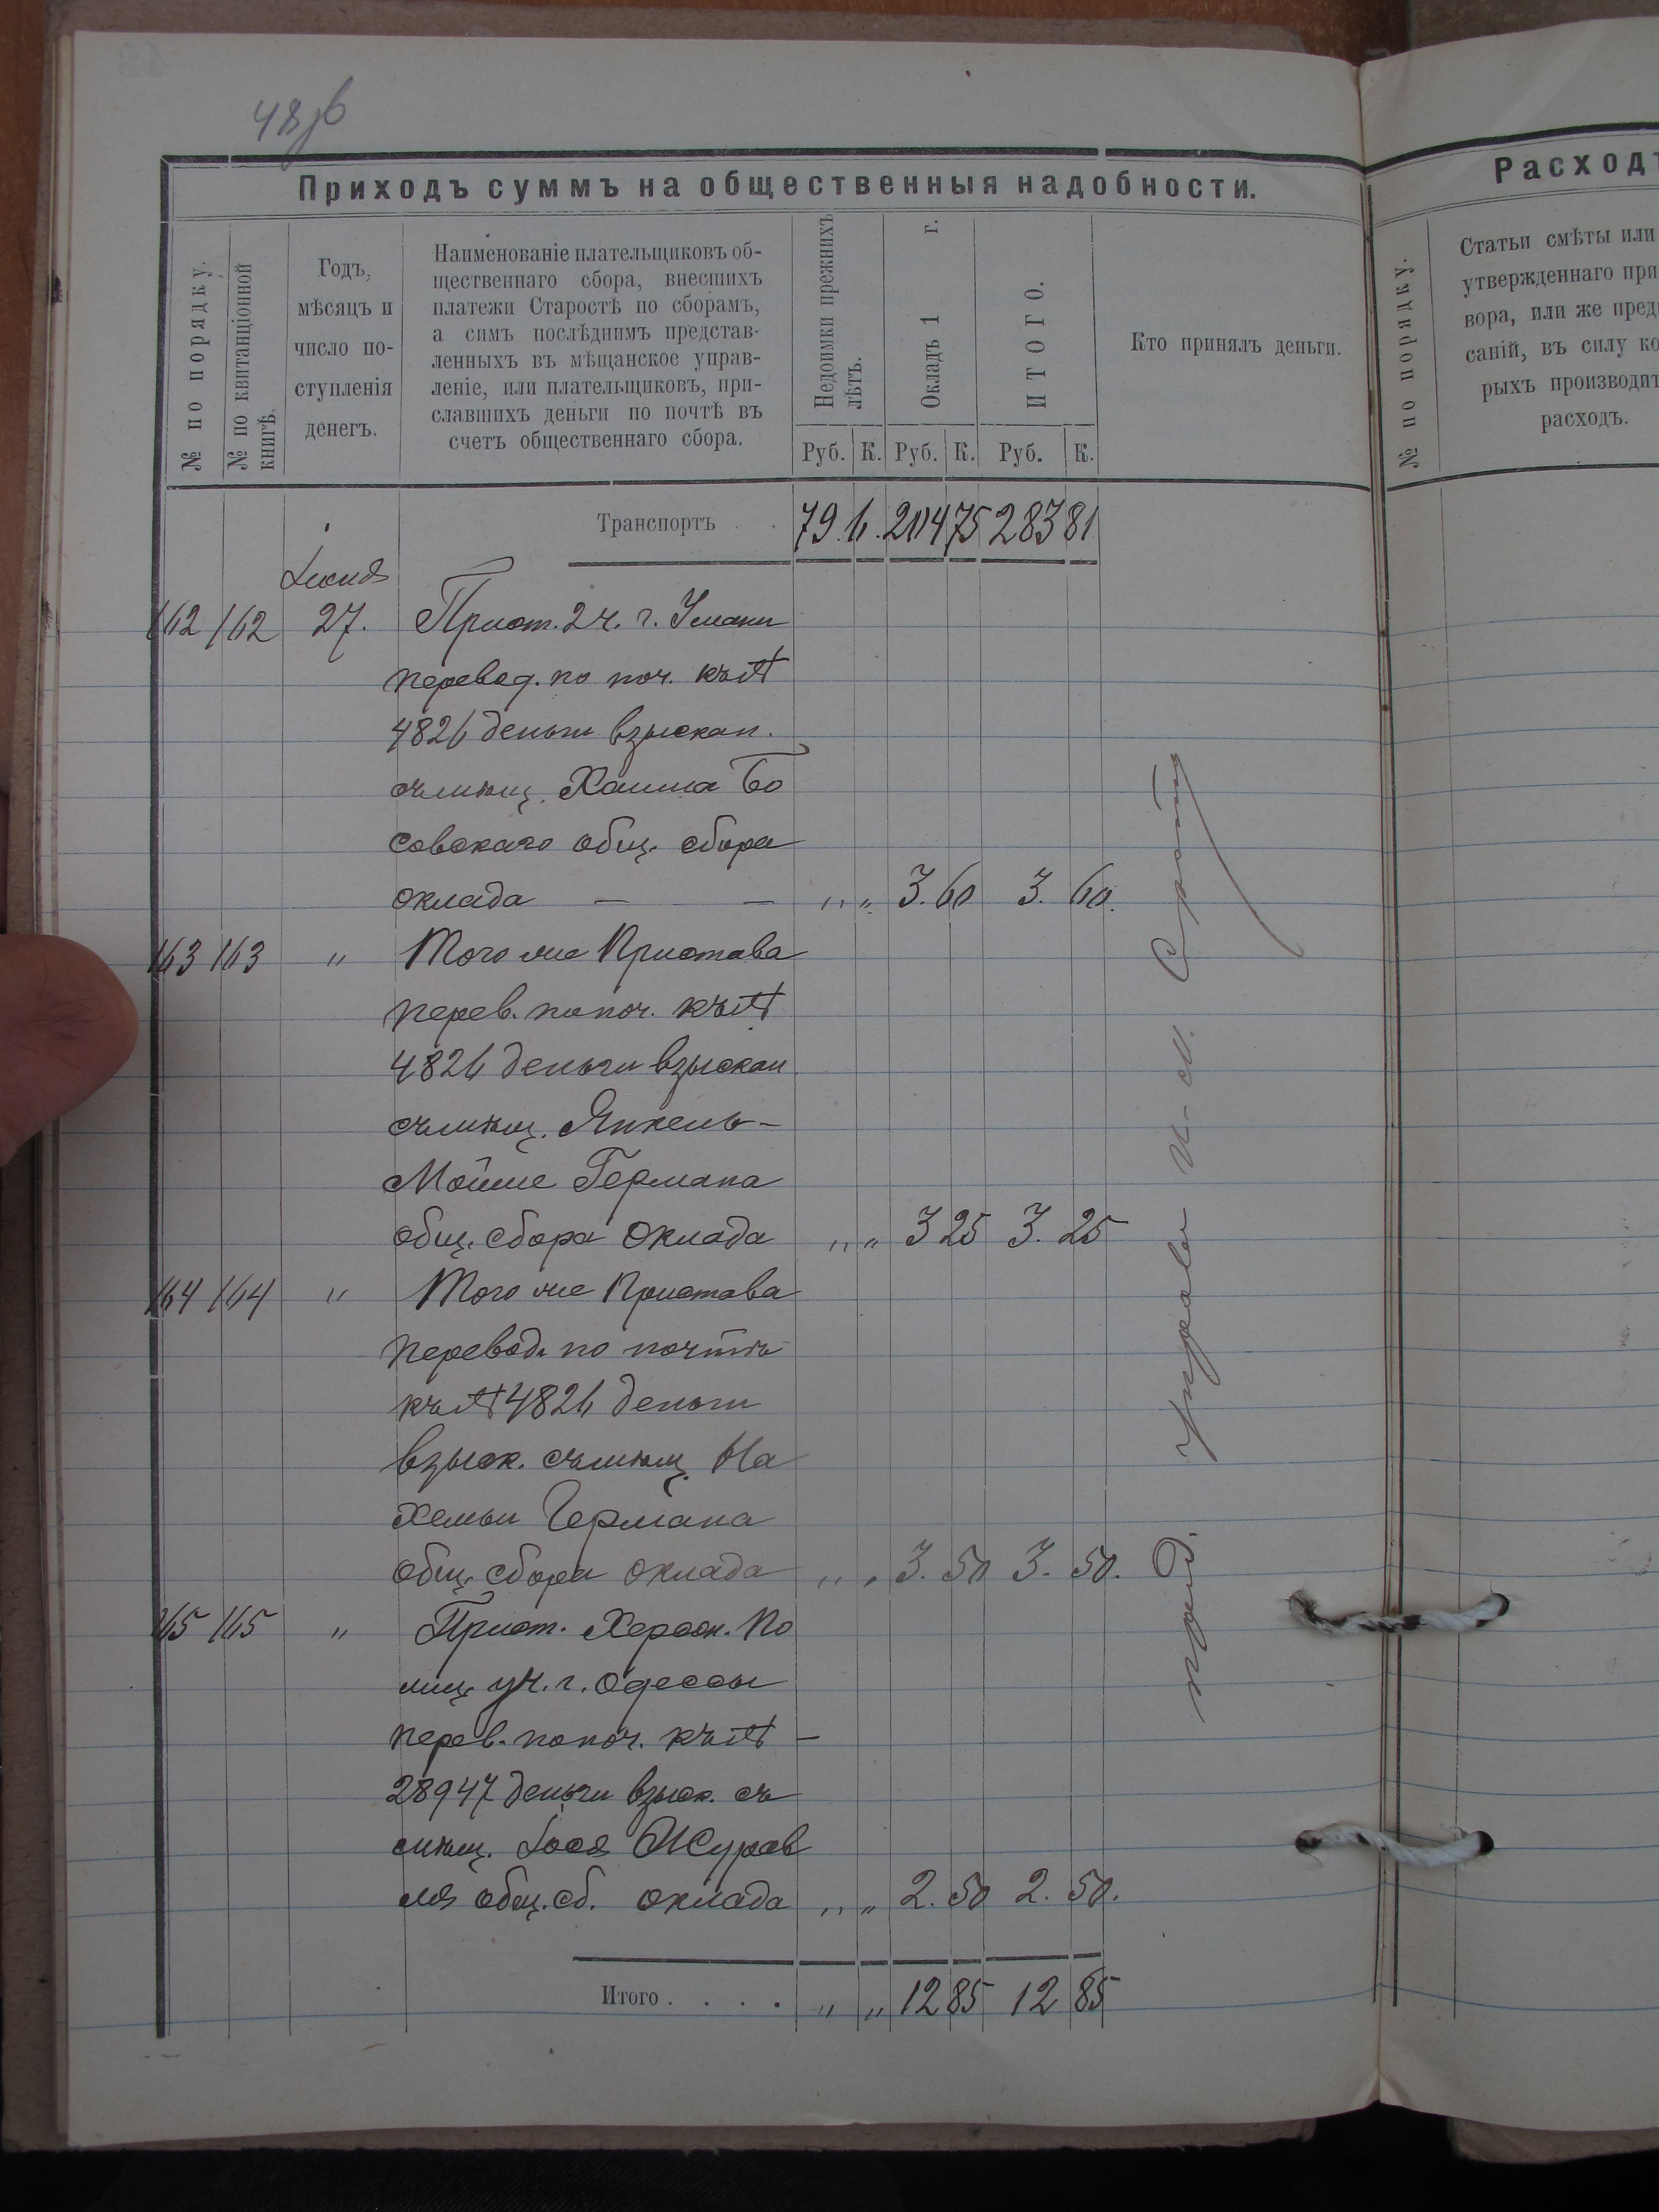 48 об
Приходъ суммъ на общественныя надобности.
№ по порядку.
№ по квитанціонной книгѣ.
Годъ,
мѣсяцъ и
число по-
ступленія
денегъ.
Наименованіе плательщиковъ об-
щественнаго сбора, внесшихъ
платежи Старостѣ по сборамъ,
а симъ послѣднимъ представ-
ленныхъ въ мѣщанское управ-
леніе, или плательщиковъ, при-
славшихъ деньги по почтѣ въ
счетъ общественнаго сбора.
Недоимки прежнихъ лѣтъ.
Окладъ 1 г.
ИТОГО.
Кто принялъ деньги.
Руб. К. Руб. К. Руб. К.
Транспортъ . . 79. 6. 204 75 283 81
Іюня
162 162 27. Прист. 2 ч. г. Умани
перевод. по поч. къ №
4826 деньги взыскан.
съ мѣщ. Хаима Бо
совскаго общ. сбора
оклада — — „ „ 3. 60 3. 60.
163 163 „ Того же Пристава
перев. по поч. къ №
4826 деньги взыскан
съ мѣщ. Янкель-
Мойше Германа
общ. сбора оклада „ „ 3 25 3. 25
164 164 „ Того же Пристава
перевод. по почтѣ
къ № 4826 деньги
взыск. съ мѣщ. На
хемьи Германа
общ. сбора оклада „ „ 3. 50 3. 50.
165 165 „ Прист. Херсон. По
лиц. уч. г. Одессы
перев. по поч. къ № —
28947 деньги взыск. съ
мѣщ. Іося Журав
ля общ. сб. оклада „ „ 2. 50 2. 50.
Итого . . . . „ „ 12 85 12 85
Расходъ
№ по порядку.
Статьи смѣты или
утвержденнаго при
вора, или же пред
саній, въ силу ко
рыхъ производит
расходъ.